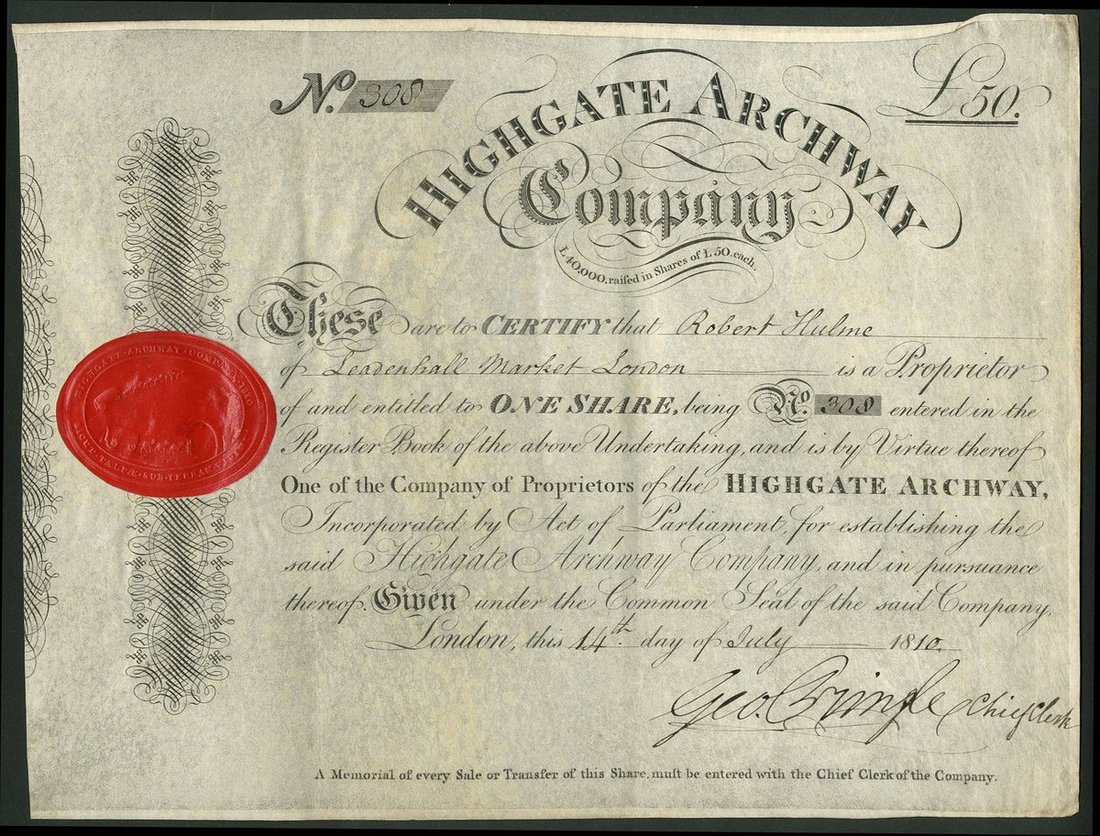 No. 308
£50.
HIGHGATE ARCHWAY
Company
L40,000, raiſed in Shares of L50 each.
These are to CERTIFY that Robert Hulme
of Leadenhall Market London is a Proprietor
of and entitled to ONE SHARE, being No. 308 entered in the
Register Book of the above Undertaking, and is by Virtue thereof
One of the Company of Proprietors of the HIGHGATE ARCHWAY,
Incorporated by Act of Parliament, for establishing the
said Highgate Archway Company, and in pursuance
thereof, Given under the Common Seal of the said Company,
London, this 14th day of July 1810.
Geo. Chief Clerk
A Memorial of every Sale or Transfer of this Share, muſt be entered with the Chief Clerk of the Company.
HIGHGATE · ARCHWAY · COMPANY